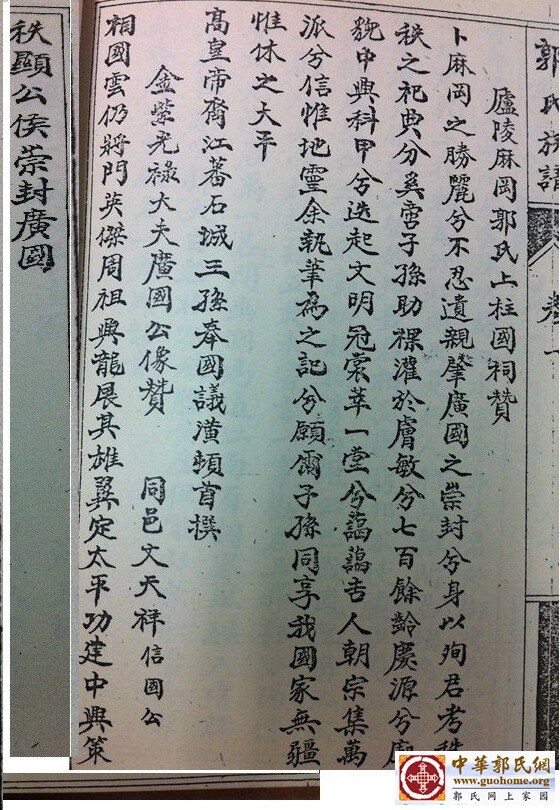 郭氏族譜
卷一
廬陵麻岡郭氏上柱國祠贊
卜麻岡之勝麗兮不忍遺親肇廣國之崇封兮身以殉君考
秩之祀典兮奚啻子孫助祼灌於膚敏兮七百餘齡慶源兮
貌中興科甲兮迭起文明冠裳萃一堂兮藹藹吉人朝宗集萬
派兮信惟地靈余執筆為之記兮願爾子孫同享我國家無疆
惟休之太平
高皇帝裔江蕃石城三孫奉國議潢頓首撰
金紫光祿大夫廣國公像贊 同邑文天祥信國公
相國雲仍將門英傑周祖興龍展其雄翼定太平功建中興策
秩顯公侯崇封廣國
中華郭氏網
www.guohome.org
郭氏网上家园